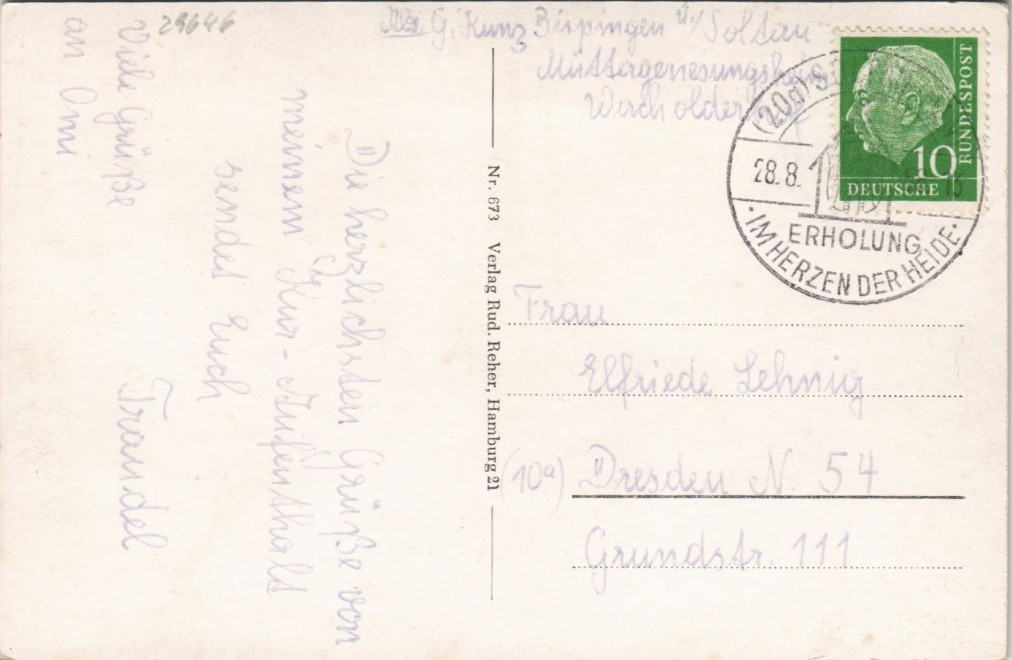 29646
Abs. G. Kunz Bispingen ü./Soltau
Müttergenesungsheim
Wacholder
(20a) S
28.8.
ERHOLUNG
· IM HERZEN DER HEIDE ·
10
DEUTSCHE
BUNDESPOST
Die herzlichsten Grüße von
meinem Kur-Aufenthalt
sendet Euch
Trandel
Viele Grüße
an Omi
Nr. 673 Verlag Rud. Reher, Hamburg 21
Frau
Elfriede Lehnig
(10a) Dresden N. 54
Grundstr. 111